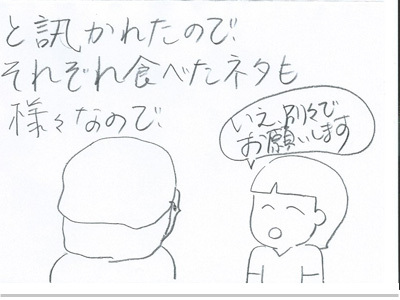 と訊かれたので、
それぞれ食べたネタも
様々なので、
いえ、別々で
お願いします